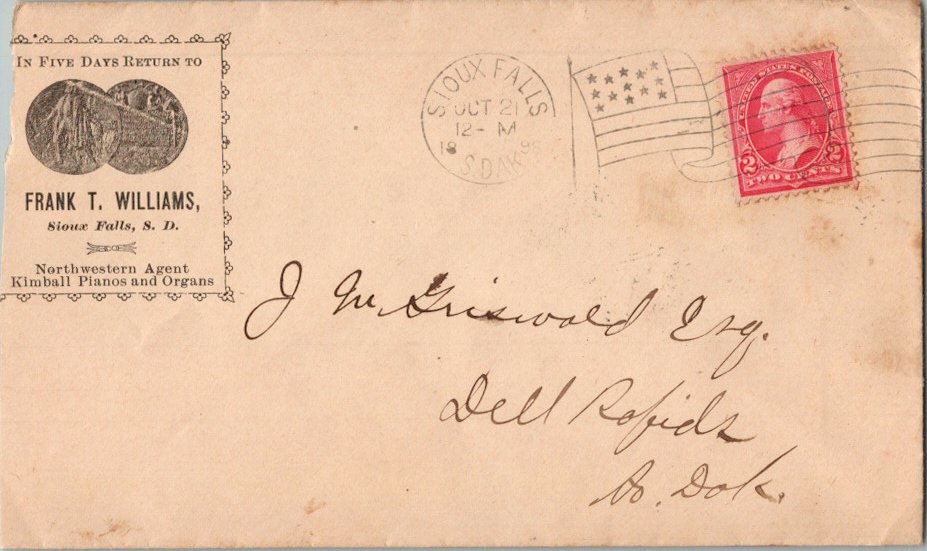 IN FIVE DAYS RETURN TO
FRANK T. WILLIAMS,
Sioux Falls, S. D.
Northwestern Agent
Kimball Pianos and Organs
SIOUX FALLS
OCT 21
12 - M
18 98
S.DAK.
UNITED STATES POSTAGE
2 2
TWO CENTS
J M Griswold Esq.
Dell Rapids
So. Dak.